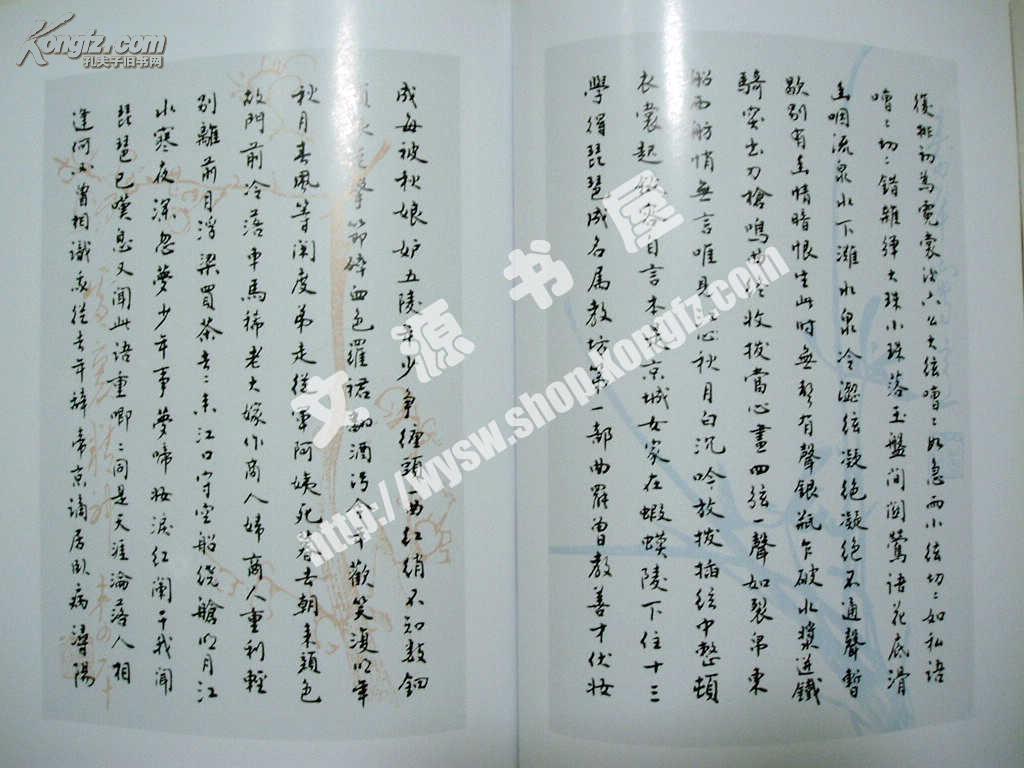 後挑初為霓裳次六幺大弦嘈〻如急雨小弦切〻如私語
嘈〻切〻錯雜彈大珠小珠落玉盤間關鶯語花底滑
幽咽流泉水下灘水泉冷澀絃凝絕凝絕不通聲暫
歇別有幽情暗恨生此時無聲有聲銀瓶乍破水漿迸鐵
騎突出刀槍鳴曲終收拔當心畫四弦一聲如裂帛東
船西舫悄無言唯見心秋月白沉吟放拨插絃中整頓
衣裳起容自言本是京城女家在蝦蟆陵下住十三
學得琵琶成名属教坊第一部曲罷曾教善才伏妆
成每被秋娘妒五陵年少争纏頭一曲红绡不知数鈿
頭擊節碎血色羅裙翻酒污今年歡笑復明年
秋月春風等闲度弟走從軍阿姨死暮去朝来顏色
故門前冷落車馬稀老大嫁作商人婦商人重利輕
别離前月浮梁買茶去〻来江口守空船绕艙明月江
水寒夜深忽夢少年事夢啼妝淚红阑干我聞
琵琶已嘆息又聞此语重唧〻同是天涯淪落人相
逢何必曾相識我從去年辭帝京謫居卧病潯陽
Kongfz.com
孔夫子旧书网
文源书屋
http://wysw.shop.kongfz.com